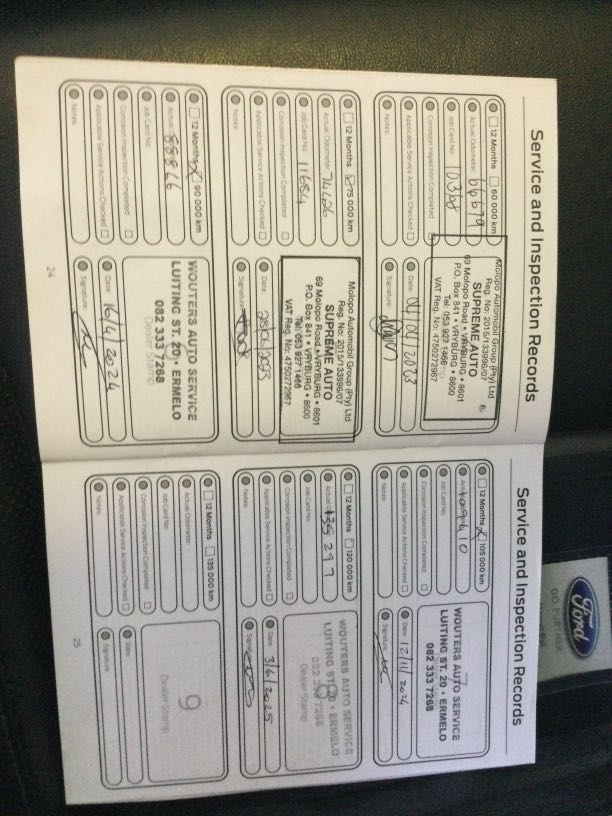 Service and Inspection Records
12 Months 60 000 km
Actual Odometer: 66679
Job Card No: 10368
Corrosion Inspection Completed
Applicable Service Actions Checked
Notes:
Molopo Automobil Group (Pty) Ltd
Reg. No: 2015/133996/07
SUPREME AUTO
69 Molopo Road • VRYBURG • 8601
P.O. Box 841 • VRYBURG • 8600
Tel: 053 927 1466
VAT Reg. No: 4750272967
Date:
Signature:
12 Months 75 000 km
Actual Odometer: 74426
Job Card No: 11684
Corrosion Inspection Completed
Applicable Service Actions Checked
Notes:
Molopo Automobil Group (Pty) Ltd
Reg. No: 2015/133996/07
SUPREME AUTO
69 Molopo Road • VRYBURG • 8601
P.O. Box 841 • VRYBURG • 8600
Tel: 053 927 1466
VAT Reg. No: 4750272967
Date:
Signature:
12 Months 90 000 km
Actual 88866
Job Card No:
Corrosion Inspection Completed
Applicable Service Actions Checked
Notes:
WOUTERS AUTO SERVICE
LUITING ST. 20 • ERMELO
082 333 7268
Dealer Stamp
Date: 16/4/2024
Signature:
24
Service and Inspection Records
12 Months 105 000 km
109410
Job Card No:
Corrosion Inspection Completed
Applicable Service Actions Checked
Notes:
7
WOUTERS AUTO SERVICE
LUITING ST. 20 • ERMELO
082 333 7268
Date: 12/11/2024
Signature:
12 Months 120 000 km
Actual 135297
Job Card No:
Corrosion Inspection Completed
Applicable Service Actions Checked
Notes:
8
WOUTERS AUTO SERVICE
LUITING ST. 20 • ERMELO
082 333 7268
Dealer Stamp
Date: 3/6/2025
Signature:
12 Months 135 000 km
Actual Odometer:
Job Card No:
Corrosion Inspection Completed
Applicable Service Actions Checked
Notes:
9
Dealer Stamp
Date:
Signature:
25
Ford
GO FURTHER